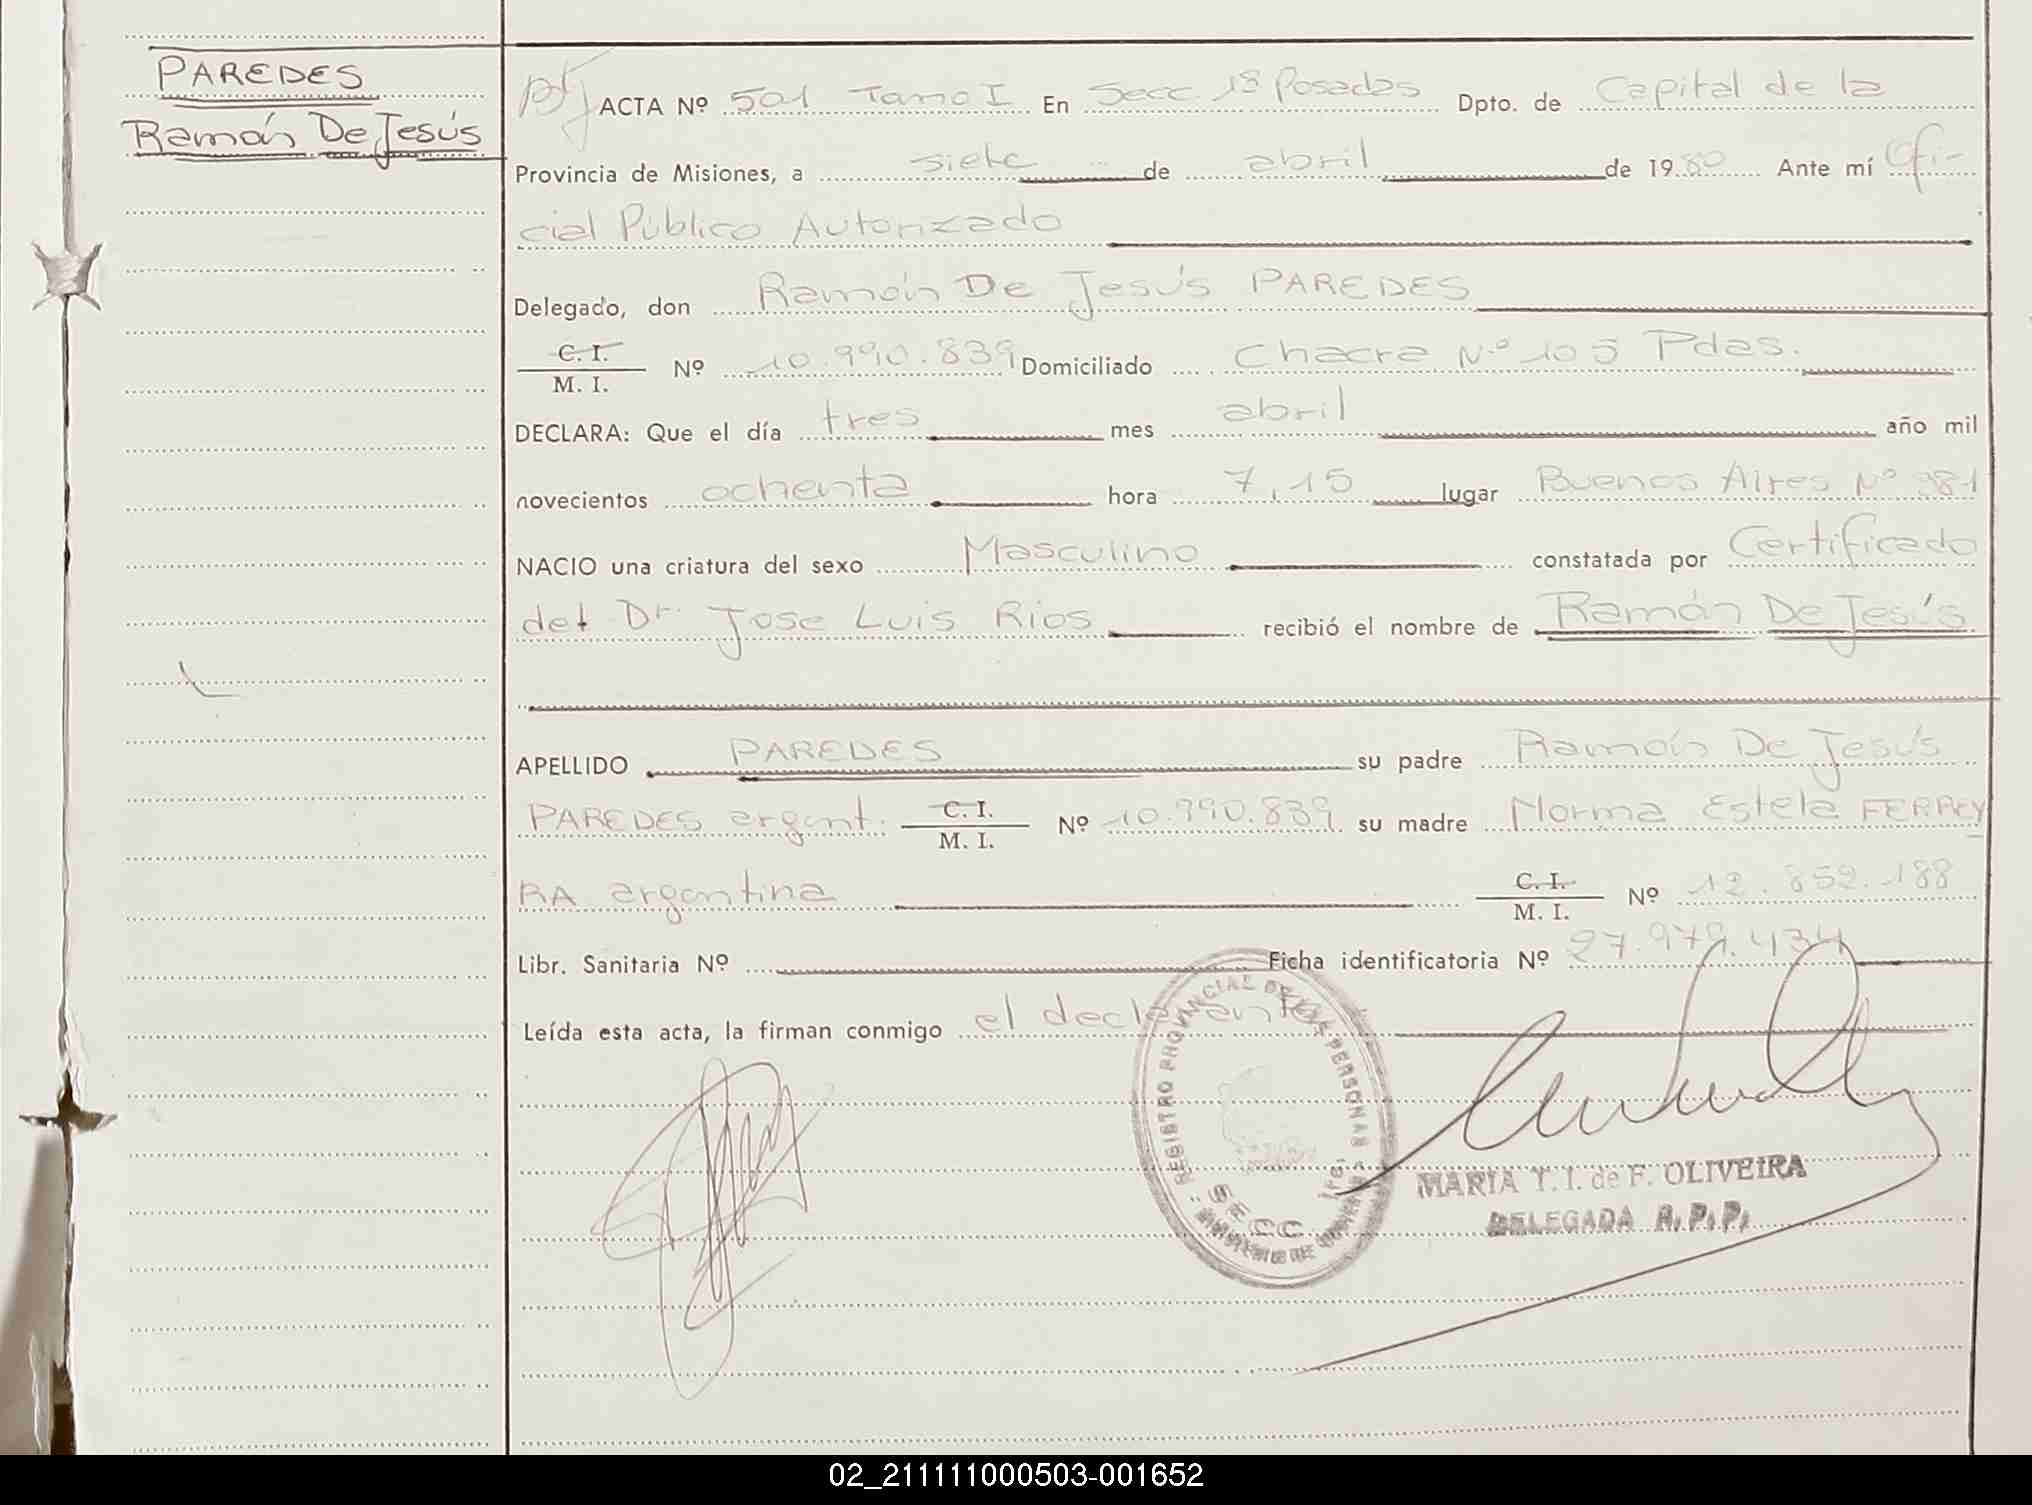 PAREDES
Ramón De Jesús
ACTA Nº 501 Tomo I En Secc 1ª Posadas Dpto. de Capital de la
Provincia de Misiones, a siete de abril de 1980 Ante mí Ofi-
cial Público Autorizado
Delegado, don Ramón De Jesús PAREDES
C. I.
M. I. Nº 10.990.839 Domiciliado Chacra Nº 105 Pdas.
DECLARA: Que el día tres mes abril año mil
novecientos ochenta hora 7,15 lugar Buenos Aires Nº 381
NACIO una criatura del sexo Masculino constatada por Certificado
del Dr. Jose Luis Rios recibió el nombre de Ramón De Jesús
APELLIDO PAREDES su padre Ramón De Jesús
PAREDES argent. C. I.
M. I. Nº 10.990.839 su madre Norma Estela FERREY
RA argentina C. I.
M. I. Nº 12.852.188
Libr. Sanitaria Nº Ficha identificatoria Nº 27.979.434
Leída esta acta, la firman conmigo el declarante
REGISTRO PROVINCIAL DE LAS PERSONAS
SECC 1ra.
MARIA Y. I. de F. OLIVEIRA
DELEGADA R.P.P.
02_211111000503-001652